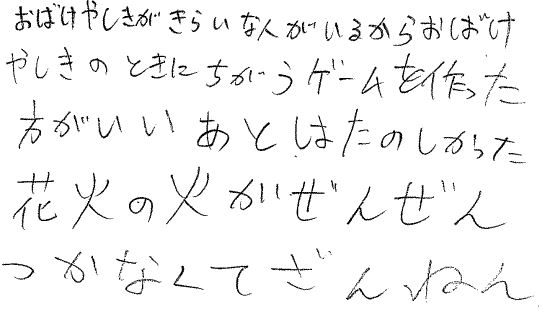 おばけやしきがきらいな人がいるからおばけ
やしきのときにちがうゲームを作った
方がいいあとはたのしかった
花火の火がぜんぜん
つかなくてざんねん